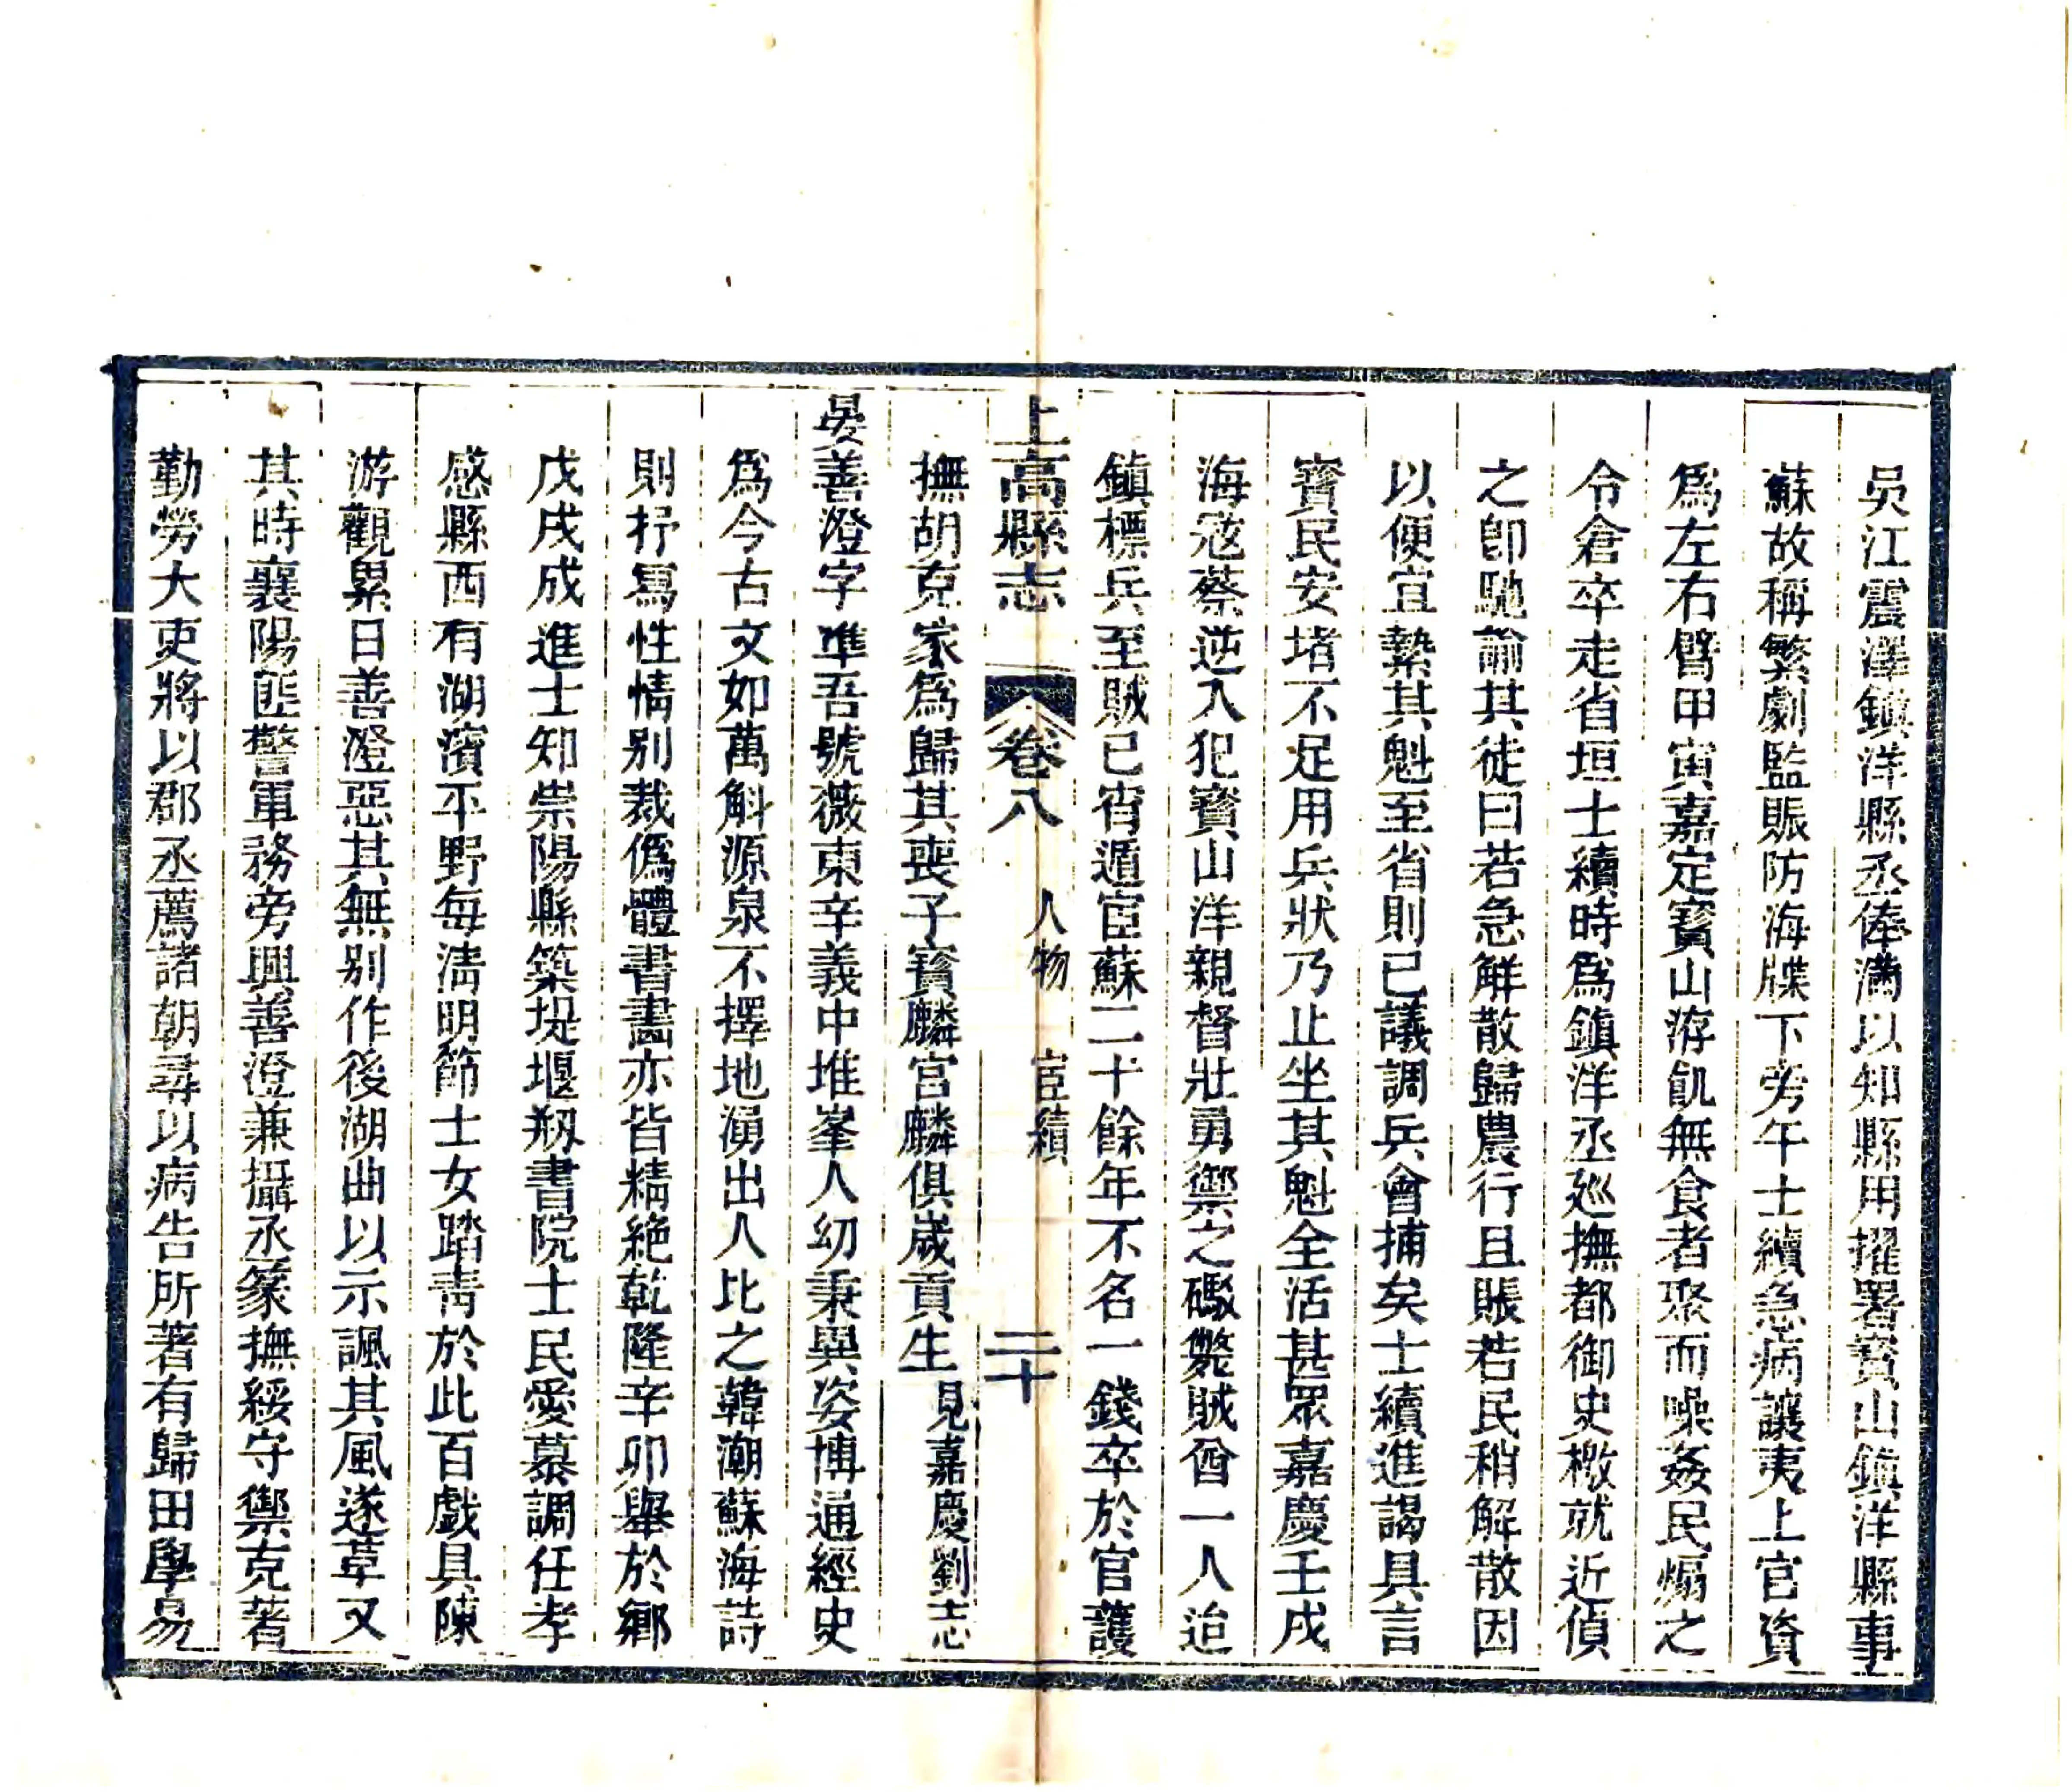 吳江震澤鎮洋縣丞俸滿以知縣用擢署寶山鎮洋縣事
蘇故稱繁劇監賑防海牒下旁午士續急病讓夷上官資
爲左右臂甲寅嘉定寶山洊飢無食者聚而噪姦民煽之
令倉卒走省垣士續時爲鎮洋丞廵撫都御史檄就近偵
之卽馳諭其徒曰若急解散歸農行且賑若民稍解散因
以便宜縶其魁至省則已議調兵會捕矣士續進謁具言
寶民安堵不足用兵狀乃止坐其魁全活甚眾嘉慶壬戌
海冦蔡逆入犯寶山洋親督壯勇禦之礮斃賊酋一人迨
鎮標兵至賊已宵遁宦蘇二十餘年不名一錢卒於官護
上高縣志 卷八 人物 宦績 二十
撫胡克家爲歸其喪子寶麟宮麟俱歲貢生 見嘉慶劉志
晏善澄字準吾號薇東辛義中堆峯人幼秉異姿博通經史
爲今古文如萬斛源泉不擇地湧出人比之韓潮蘇海詩
則抒寫性情别裁僞體書畵亦皆精絶乾隆辛卯舉於鄉
戊戌成進士知崇陽縣築堤堰剏書院士民愛慕調任孝
感縣西有湖濱平野每淸明節士女踏靑於此百戱具陳
游觀累日善澄惡其無别作後湖曲以示諷其風遂革又
其時襄陽匪警軍務旁興善澄兼攝丞篆撫綏守禦克著
勤勞大吏將以郡丞薦諸朝尋以病告所著有歸田學易